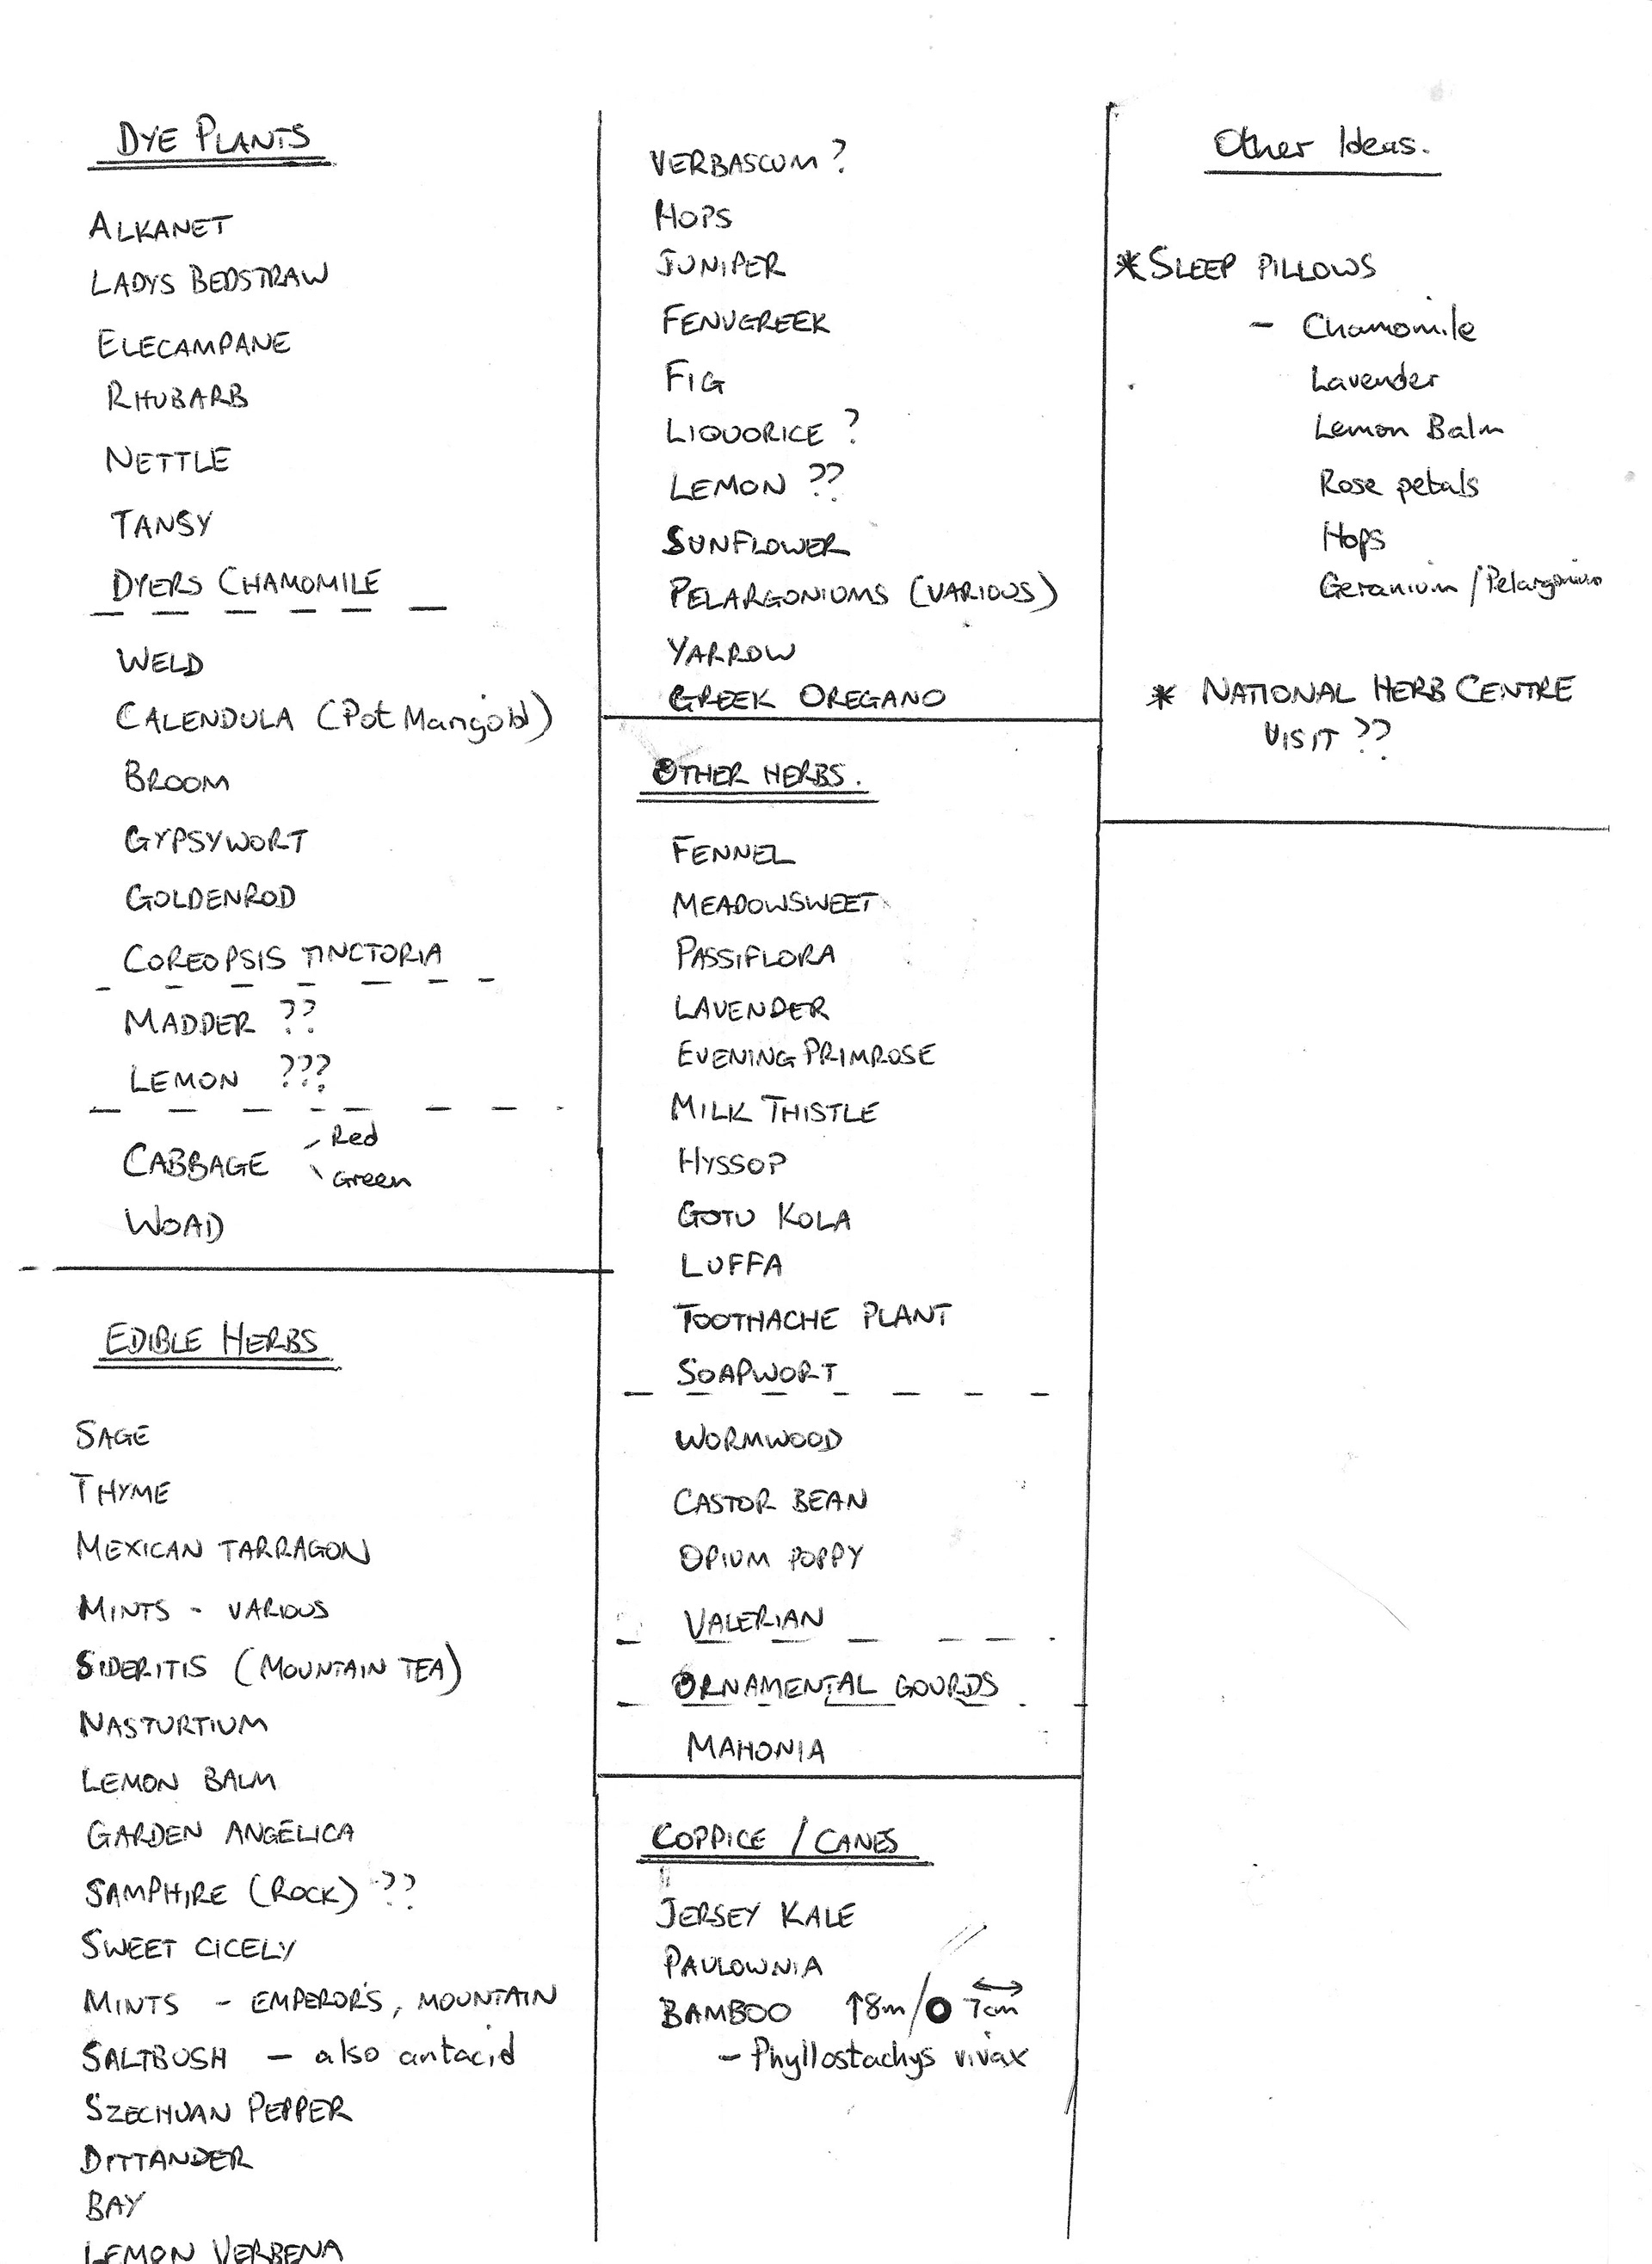 DYE PLANTS
ALKANET
LADYS BEDSTRAW
ELECAMPANE
RHUBARB
NETTLE
TANSY
DYERS CHAMOMILE
WELD
CALENDULA (Pot Marigold)
BROOM
GYPSYWORT
GOLDENROD
COREOPSIS TINCTORIA
MADDER ??
LEMON ???
CABBAGE Red
Green
WOAD
EDIBLE HERBS
SAGE
THYME
MEXICAN TARRAGON
MINTS - VARIOUS
SIDERITIS (MOUNTAIN TEA)
NASTURTIUM
LEMON BALM
GARDEN ANGELICA
SAMPHIRE (ROCK) ??
SWEET CICELY
MINTS - EMPEROR'S, MOUNTAIN
SALTBUSH - also antacid
SZECHUAN PEPPER
DITTANDER
BAY
LEMON VERBENA
VERBASCUM ?
HOPS
JUNIPER
FENUGREEK
FIG
LIQUORICE ?
LEMON ??
SUNFLOWER
PELARGONIUMS (VARIOUS)
YARROW
GREEK OREGANO
OTHER HERBS.
FENNEL
MEADOWSWEET
PASSIFLORA
LAVENDER
EVENING PRIMROSE
MILK THISTLE
HYSSOP
GOTU KOLA
LUFFA
TOOTHACHE PLANT
SOAPWORT
WORMWOOD
CASTOR BEAN
OPIUM POPPY
VALERIAN
ORNAMENTAL GOURDS
MAHONIA
COPPICE / CANES
JERSEY KALE
PAULOWNIA
BAMBOO ↑8m/O 7cm ↔
- Phyllostachys vivax
Other Ideas.
* SLEEP PILLOWS
- Chamomile
Lavender
Lemon Balm
Rose petals
Hops
Geranium / Pelargonium
* NATIONAL HERB CENTRE
VISIT ??